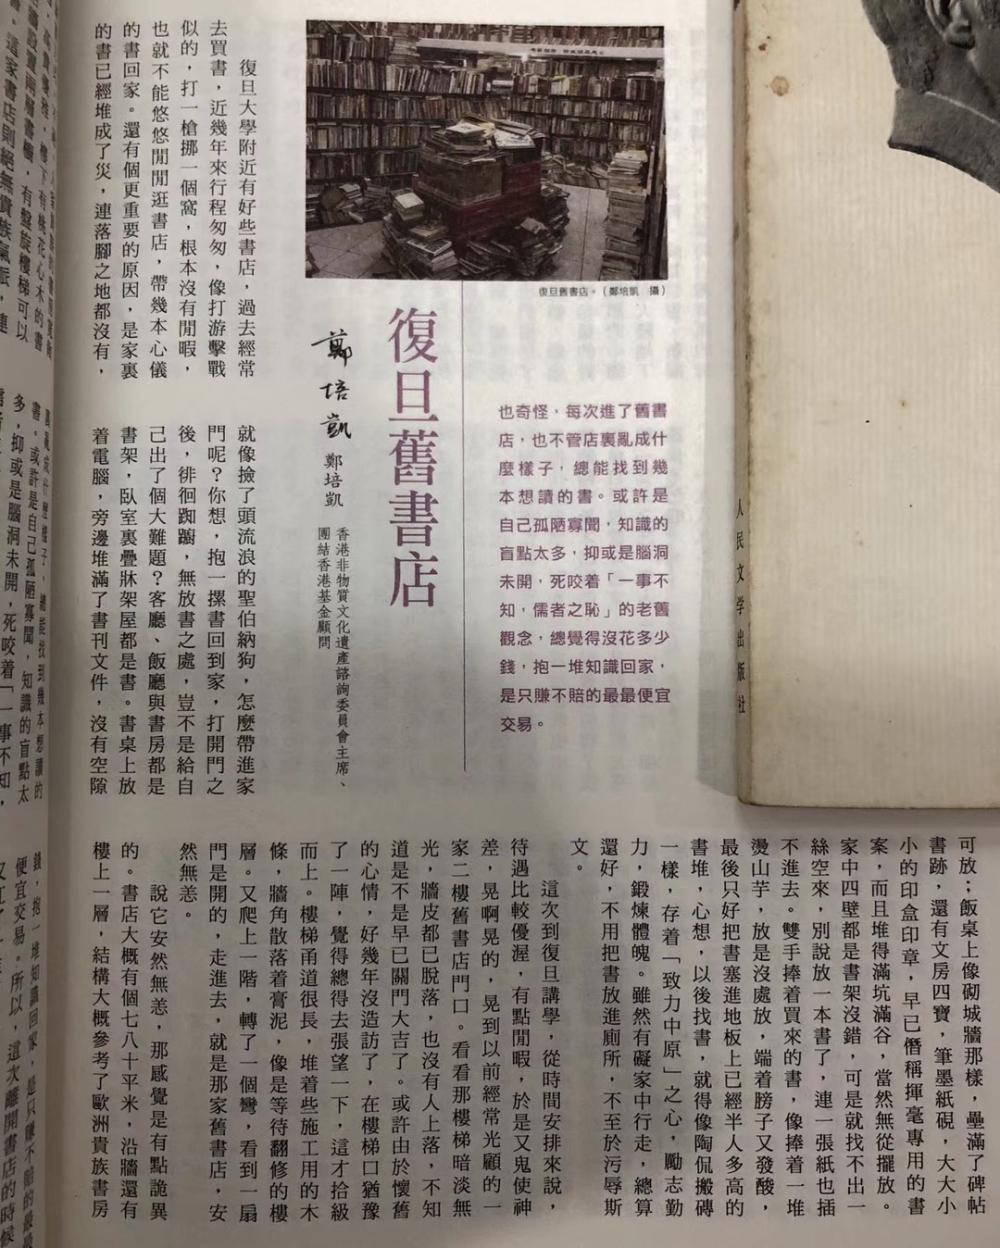 復旦舊書店。（鄭培凱　攝）
復旦舊書店
鄭培凱
鄭培凱
香港非物質文化遺產諮詢委員會主席、
團結香港基金顧問
也奇怪，每次進了舊書
店，也不管店裏亂成什
麼樣子，總能找到幾
本想讀的書。或許是
自己孤陋寡聞，知識的
盲點太多，抑或是腦洞
未開，死咬着「一事不
知，儒者之恥」的老舊
觀念，總覺得沒花多少
錢，抱一堆知識回家，
是只賺不賠的最最便宜
交易。
復旦大學附近有好些書店，過去經常
去買書，近幾年來行程匆匆，像打游擊戰
似的，打一槍挪一個窩，根本沒有閒暇，
也就不能悠悠閒閒逛書店，帶幾本心儀
的書回家。還有個更重要的原因，是家裏
的書已經堆成了災，連落腳之地都沒有，
就像撿了頭流浪的聖伯納狗，怎麼帶進家
門呢？你想，抱一摞書回到家，打開門之
後，徘徊踟躕，無放書之處，豈不是給自
己出了個大難題？客廳、飯廳與書房都是
書架，臥室裏疊牀架屋都是書。書桌上放
着電腦，旁邊堆滿了書刊文件，沒有空隙
可放；飯桌上像砌城牆那樣，壘滿了碑帖
書跡，還有文房四寶，筆墨紙硯，大大小
小的印盒印章，早已僭稱揮毫專用的書
案，而且堆得滿坑滿谷，當然無從擺放。
家中四壁都是書架沒錯，可是就找不出一
絲空來，別說放一本書了，連一張紙也插
不進去。雙手捧着買來的書，像捧着一堆
燙山芋，放是沒處放，端着膀子又發酸，
最後只好把書塞進地板上已經半人多高的
書堆，心想，以後找書，就得像陶侃搬磚
一樣，存着「致力中原」之心，勵志勤
力，鍛煉體魄。雖然有礙家中行走，總算
還好，不用把書放進廁所，不至於污辱斯
文。
這次到復旦講學，從時間安排來說，
待遇比較優渥，有點閒暇，於是又鬼使神
差，晃啊晃的，晃到以前經常光顧的一
家二樓舊書店門口。看看那樓梯暗淡無
光，牆皮都已脫落，也沒有人上落，不知
道是不是早已關門大吉了。或許由於懷舊
的心情，好幾年沒造訪了，在樓梯口猶豫
了一陣，覺得總得去張望一下，這才拾級
而上。樓梯甬道很長，堆着些施工用的木
條，牆角散落着膏泥，像是等待翻修的樓
層。又爬上一階，轉了一個彎，看到一扇
門是開的，走進去，就是那家舊書店，安
然無恙。
說它安然無恙，那感覺是有點詭異
的。書店大概有個七八十平米，沿牆還有
樓上一層，結構大概參考了歐洲貴族書房
人民文学出版社